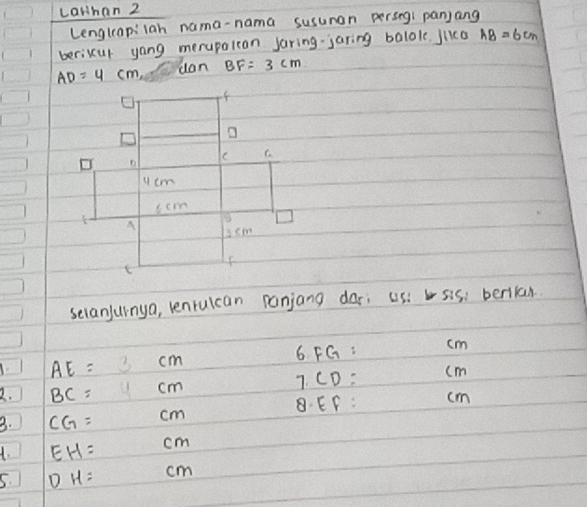 Latihan 2
Lengkapilah nama-nama susunan persegi panjang
berikut yang merupakan jaring-jaring balok. jika AB = 6 cm
AD = 4 cm, dan BF = 3 cm
F
D C G
4 cm
6 cm
E A B
3 cm
E F
selanjutnya, tentukan panjang dari sisi berikut.
1. AE = 3 cm 6. FG : cm
2. BC = 4 cm 7. CD = cm
3. CG = cm 8. EF : cm
4. EH = cm
5. DH = cm